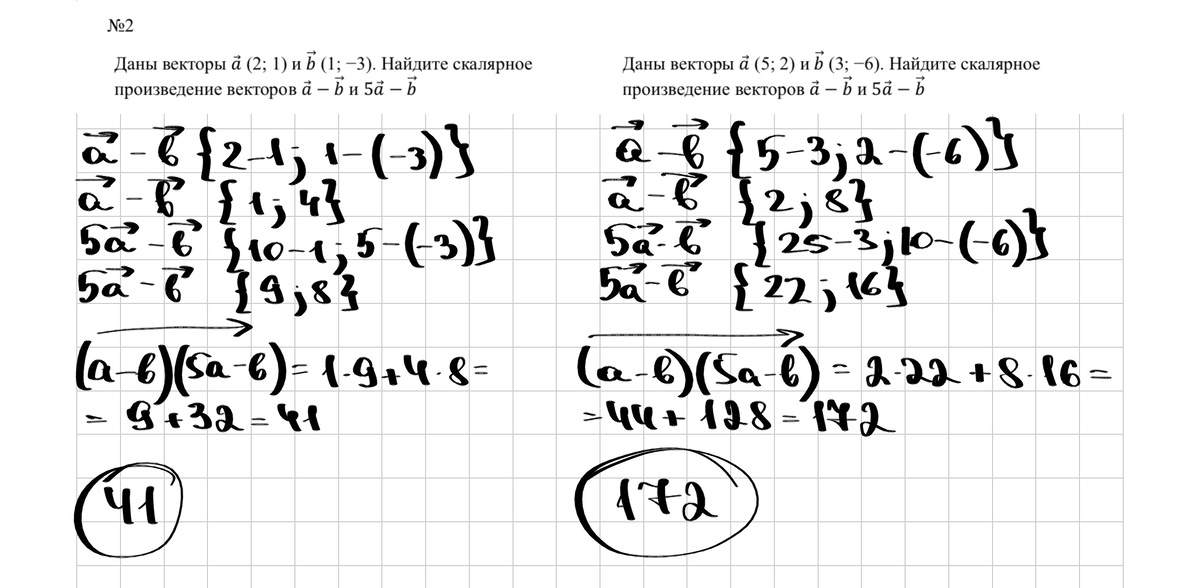 №2
Даны векторы a⃗ (2; 1) и b⃗ (1; −3). Найдите скалярное
произведение векторов a⃗ − b⃗ и 5a⃗ − b⃗
a⃗ - в⃗ {2-1; 1-(-3)}
a⃗ - в⃗ {1; 4}
5a⃗ - в⃗ {10-1; 5-(-3)}
5a⃗ - в⃗ {9; 8}
(a-в)(5a-в) = 1·9+4·8=
= 9+32=41
41
Даны векторы a⃗ (5; 2) и b⃗ (3; −6). Найдите скалярное
произведение векторов a⃗ − b⃗ и 5a⃗ − b⃗
a⃗ - в⃗ {5-3; 2-(-6)}
a⃗ - в⃗ {2; 8}
5a⃗ - в⃗ {25-3; 10-(-6)}
5a⃗ - в⃗ {22; 16}
(a-в)(5a-в) = 2·22+8·16=
=44+128=172
172